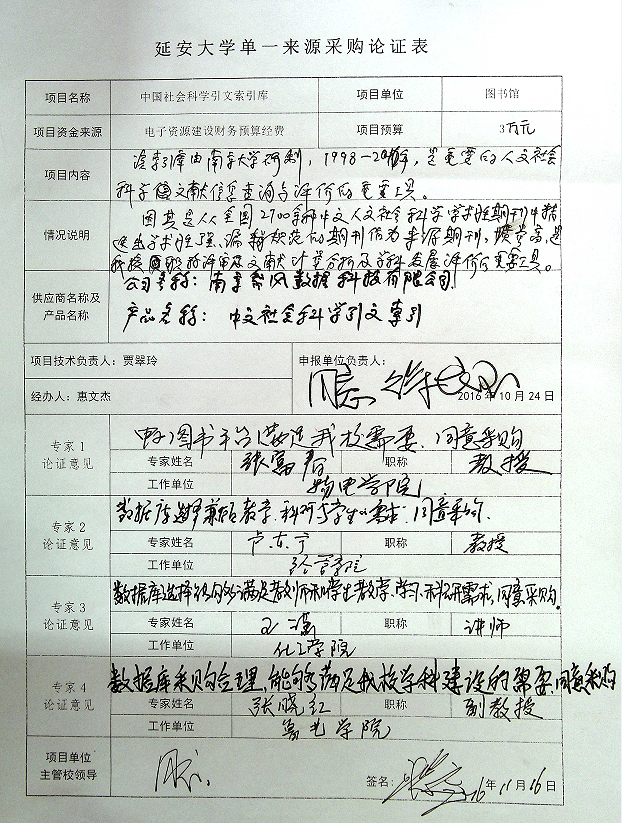 延安大学单一来源采购论证表
项目名称 中国社会科学引文索引库 项目单位 图书馆
项目资金来源 电子资源建设财务预算经费 项目预算 3万元
项目内容 该索引库由南京大学研制，1998-年，是重要的人文社会
科学文献信息查询与评价的重要工具。
情况说明 因其是从全国2700余种中文人文社会科学学术性期刊中精
选出学术性强、编辑规范的期刊作为来源期刊，
我校职称评审及文献计量分析及学科发展评价的重要工具。
供应商名称及
产品名称
公司名称：南京 数据科技有限公司
产品名称：中文社会科学引文索引
项目技术负责人：贾翠玲 申报单位负责人：
同意
经办人：惠文杰 2016年10月24日
专家1
论证意见
电子图书平台满足我校需要，同意采购
专家姓名 张富春 职称 教授
工作单位 物电学院
专家2
论证意见
数据库选择兼顾教学、科研与学生需要，同意采购.
专家姓名 卢东宁 职称 教授
工作单位 经管学院
专家3
论证意见
数据库选择能够满足教师和学生教学、学习、科研需求，同意采购。
专家姓名 王 职称 讲师
工作单位 化工学院
专家4
论证意见
数据库采购合理，能够满足我校学科建设的需要，同意采购
专家姓名 张晓红 职称 副教授
工作单位 鲁艺学院
项目单位
主管校领导
同意. 签名： 16年11月16日